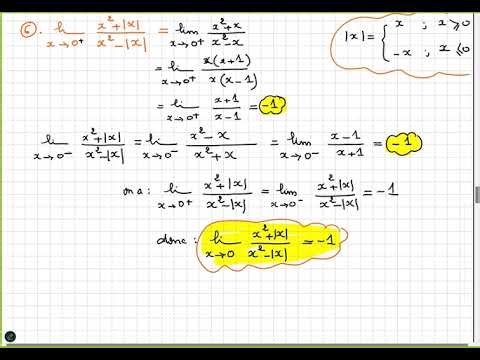 ⑥. lim x→0⁺ (x²+|x|)/(x²-|x|) = lim x→0⁺ (x²+x)/(x²-x)
|x| = { x ; x ⩾ 0
-x ; x ⩽ 0
= lim x→0⁺ x(x+1)/x(x-1)
= lim x→0⁺ (x+1)/(x-1) = -1
lim x→0⁻ (x²+|x|)/(x²-|x|) = lim x→0⁻ (x²-x)/(x²+x) = lim x→0⁻ (x-1)/(x+1) = -1
on a : lim x→0⁺ (x²+|x|)/(x²-|x|) = lim x→0⁻ (x²+|x|)/(x²-|x|) = -1
donc : lim x→0 (x²+|x|)/(x²-|x|) = -1